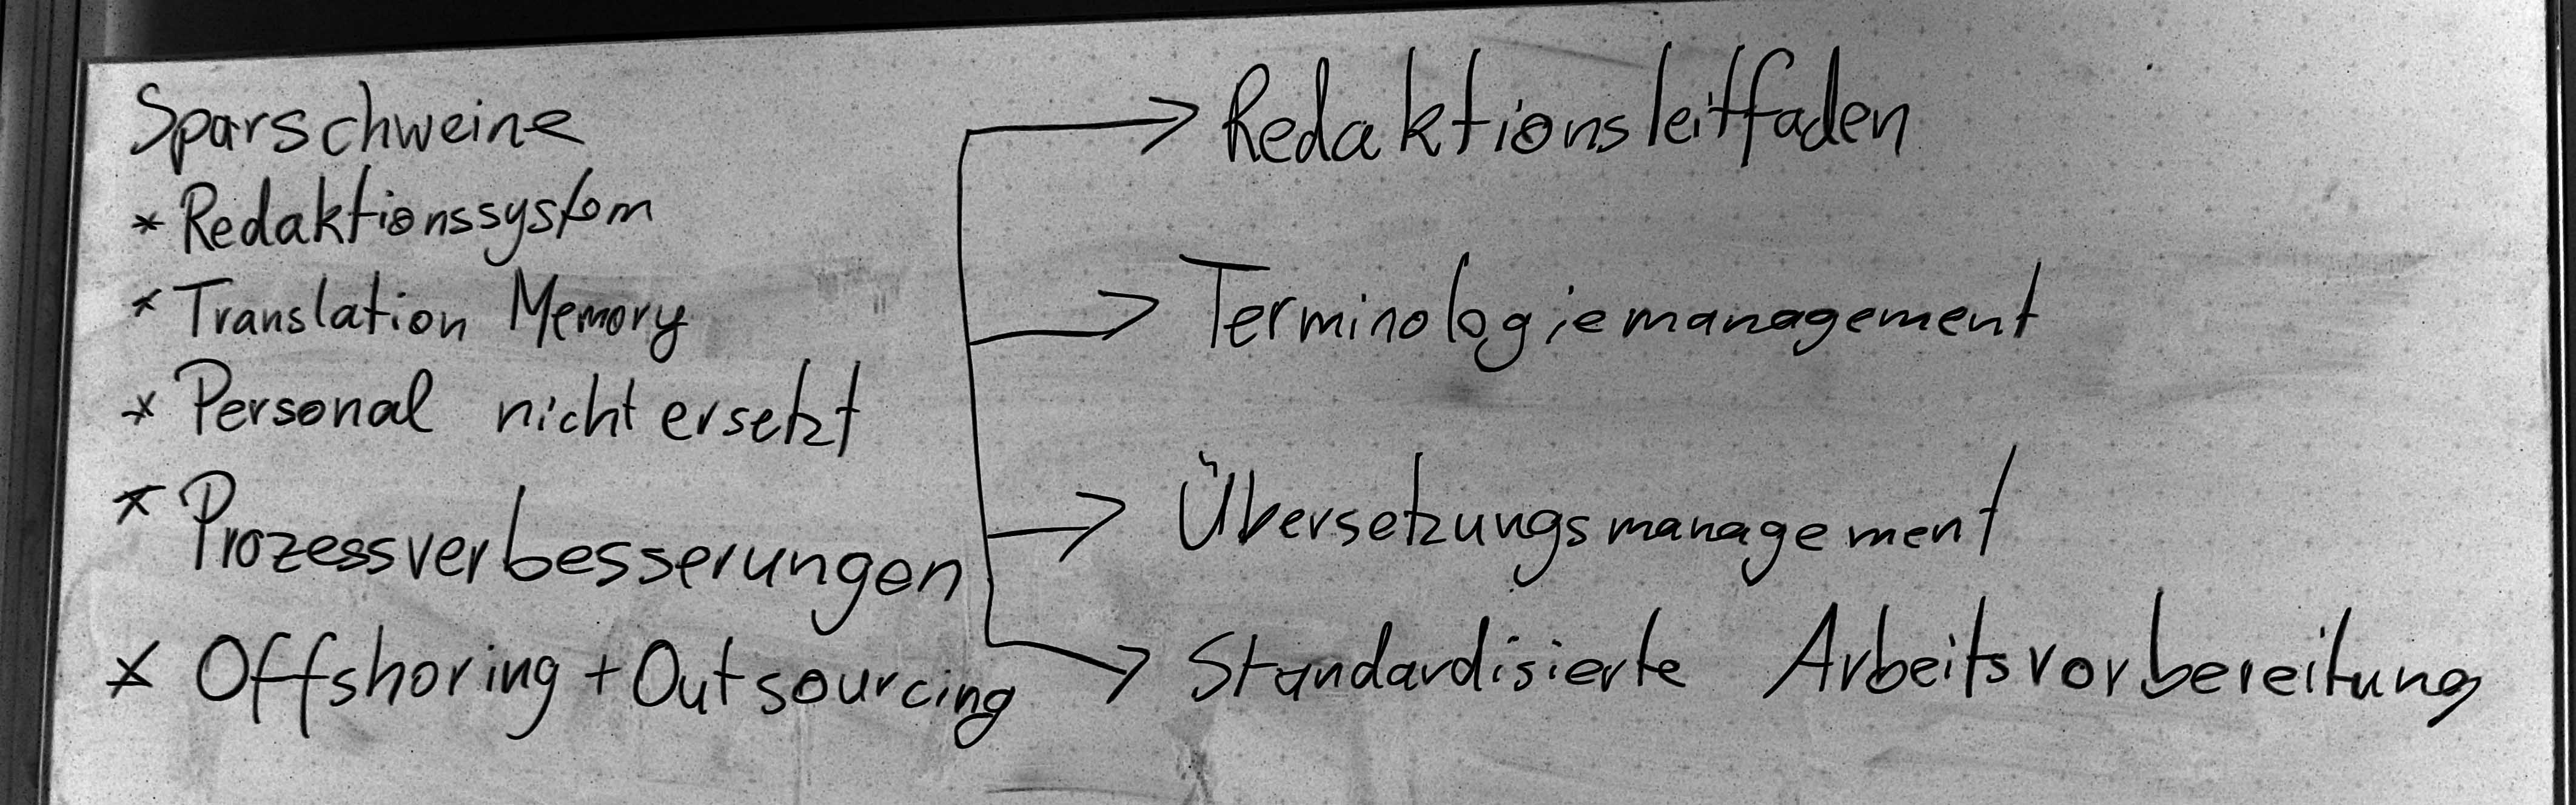 Sparschweine
* Redaktionssystem
* Translation Memory
* Personal nicht ersetzt
* Prozessverbesserungen
* Offshoring + Outsourcing
→ Redaktionsleitfaden
→ Terminologiemanagement
→ Übersetzungsmanagement
→ Standardisierte Arbeitsvorbereitung